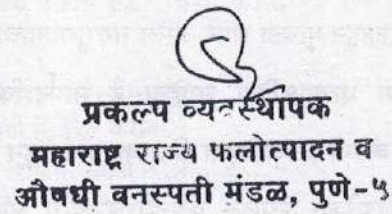 प्रकल्प व्यवस्थापक
महाराष्ट्र राज्य फलोत्पादन व
औषधी वनस्पती मंडळ, पुणे-५